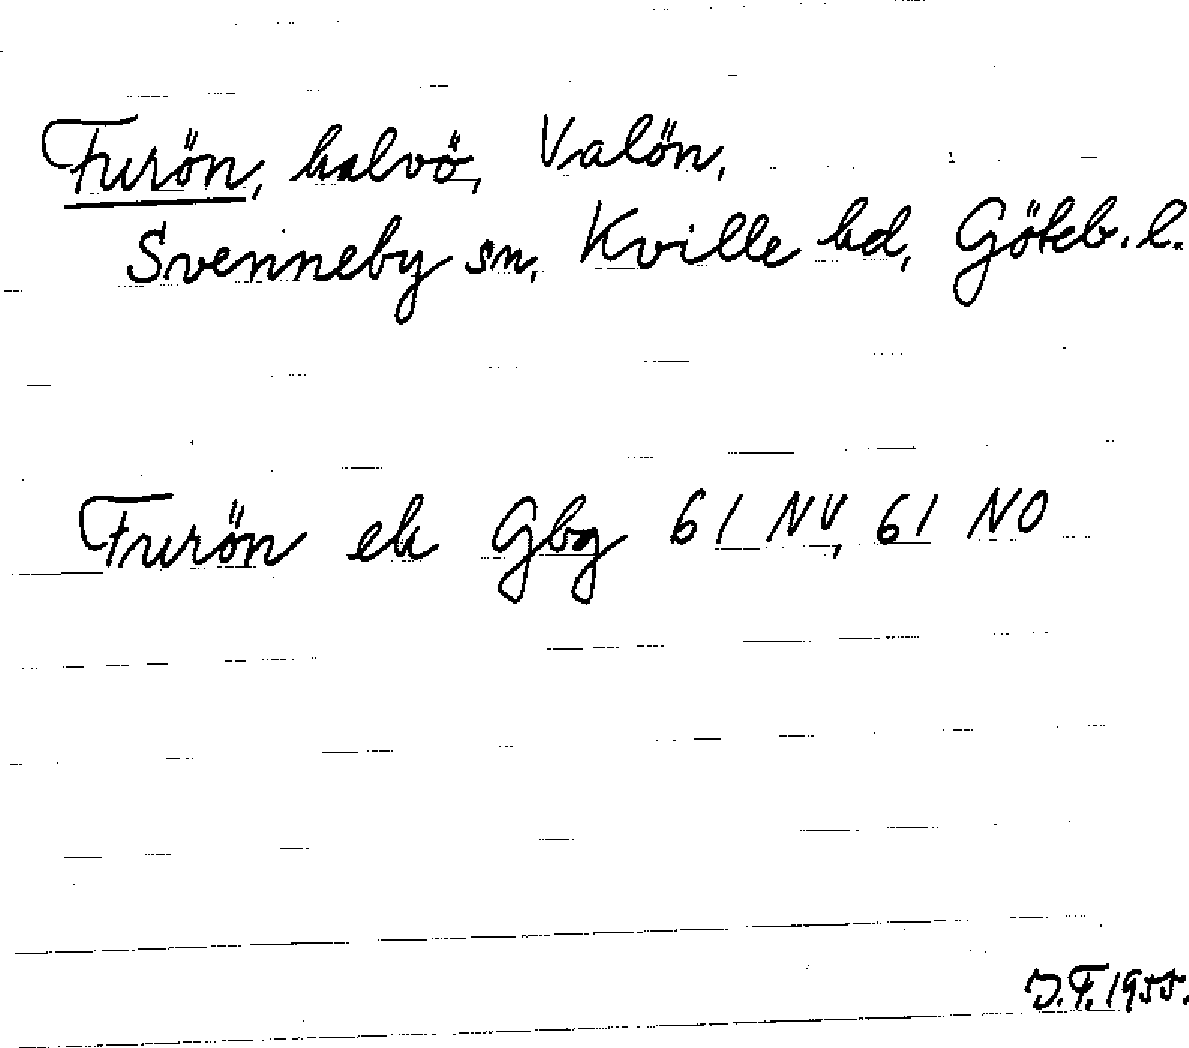 Furön, halvö, Valön,
Svenneby sn, Kville hd, Göteb. l.
Furön ek Gbg 61 NV, 61 NO
J.F. 1955.